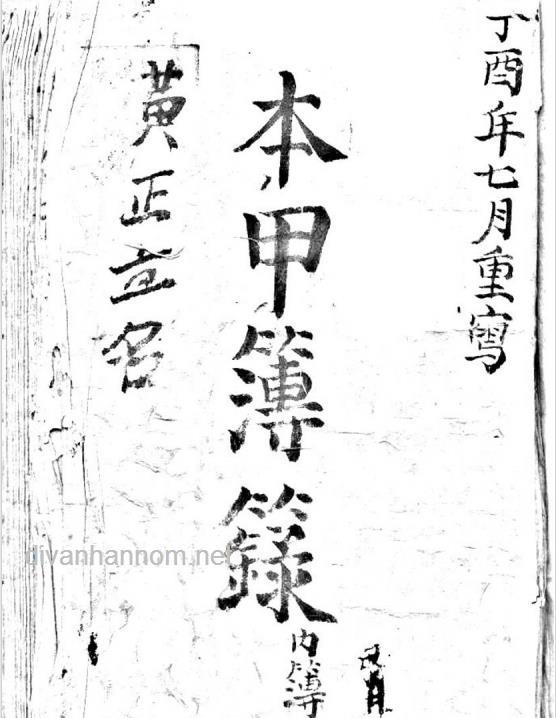 丁酉年七月重寫
本甲簿籙
内簿
黃正立名
divanhannom.net